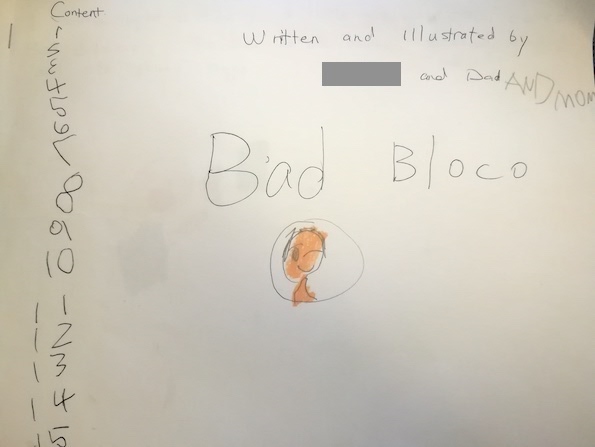 Content
1
2
3
4
5
6
7
8
9
10
11
12
13
14
15
Written and Illustrated by
and Dad AND MOM
Bad Bloco